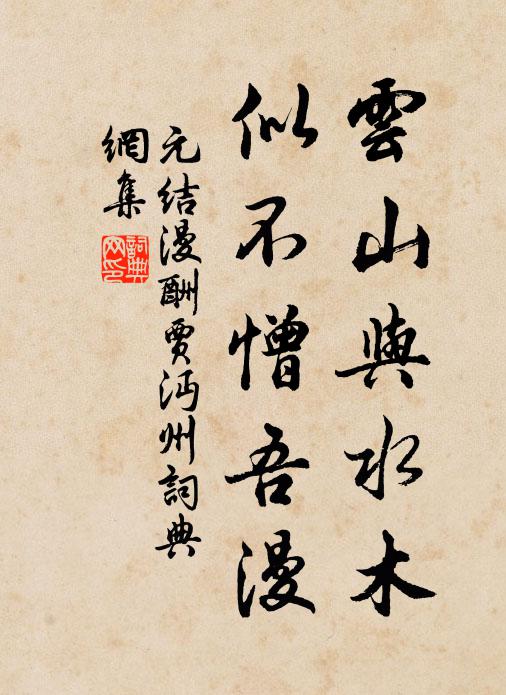 雲山與水木
似不憎吾漫
元结漫酬賈沔州詞典
網集
詞典
网印